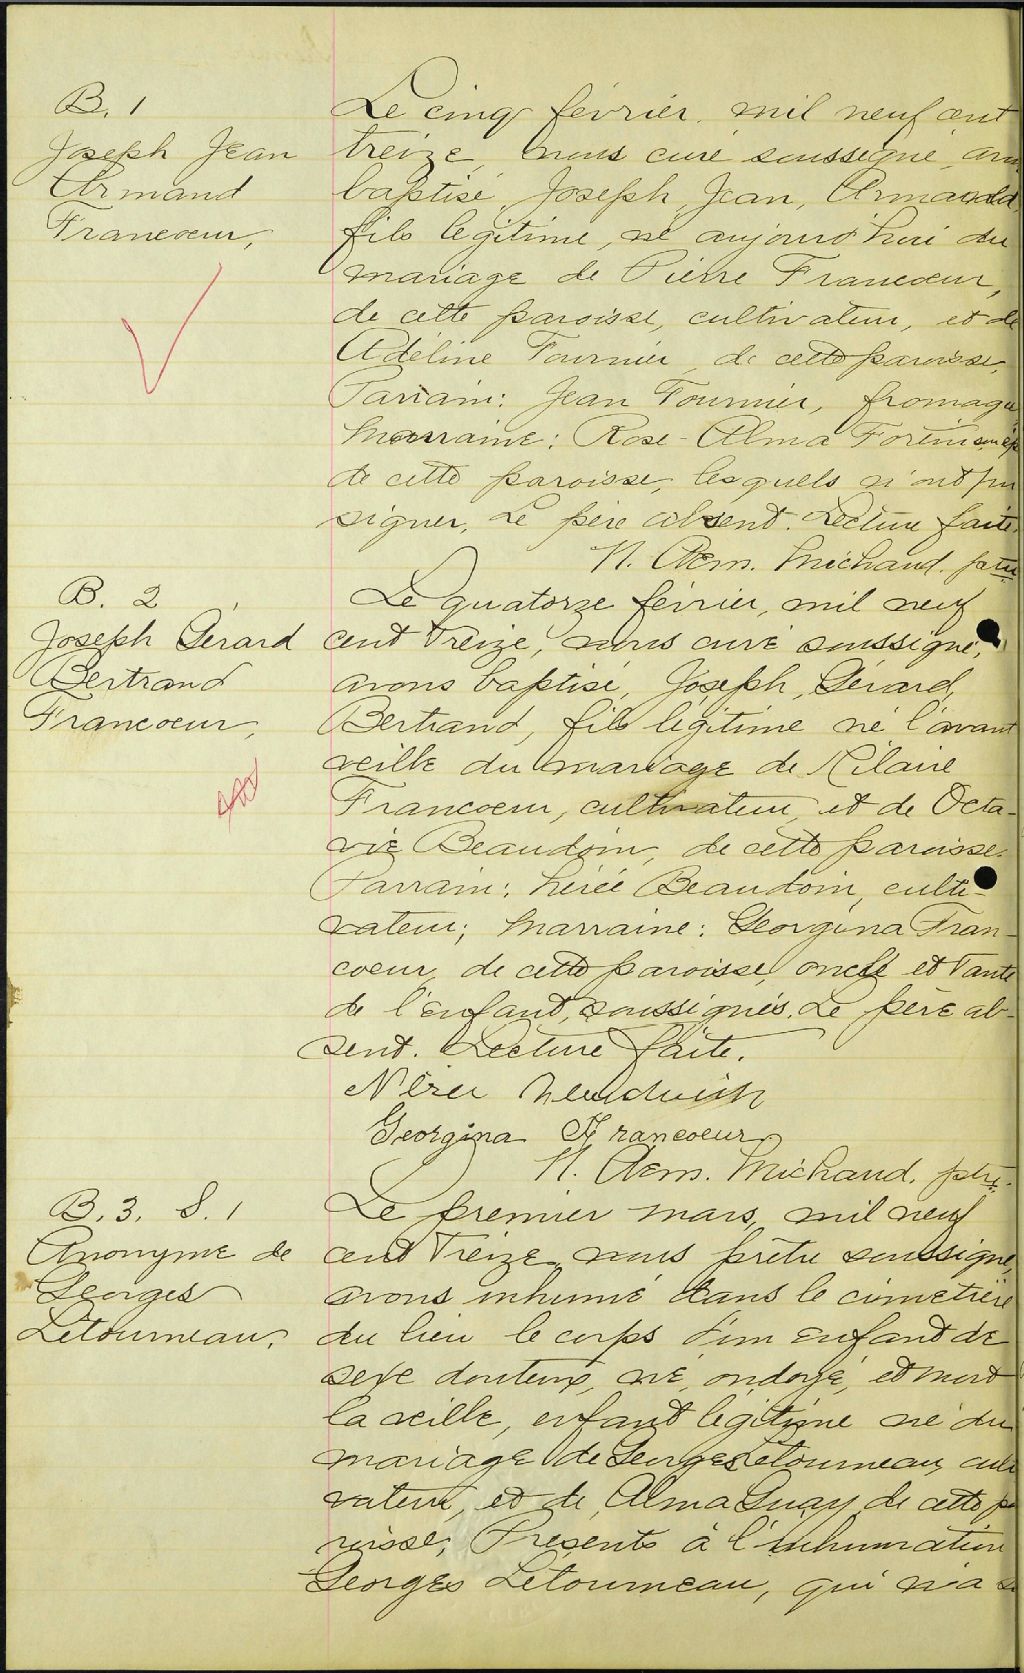 B. 1
Joseph Jean
Armand
Francoeur,
Le cinq février mil neuf cent
treize, nous curé soussigné, avons
baptisé, Joseph, Jean, Armand,
fils légitime, né aujourd'hui du
mariage de Pierre Francoeur,
de cette paroisse, cultivateur, et de
Adéline Fournier, de cette paroisse,
Parrain: Jean Fournier, fromager
Marraine: Rose-Alma Fortin
de cette paroisse, lesquels n'ont pu
signer, Le père absent. Lecture faite.
N. Aem. Michaud. ptre
B. 2
Joseph Gérard
Bertrand
Francoeur,
Le quatorze février, mil neuf
cent treize, nous curé soussigné,
avons baptisé, Joseph, Gérard,
Bertrand, fils légitime né l'avant
veille du mariage de Hilaire
Francoeur, cultivateur, et de Octa-
vie Beaudoin, de cette paroisse.
Parrain: Nérée Beaudoin, culti-
vateur; Marraine: Georgina Fran-
coeur, de cette paroisse, oncle et tante
de l'enfant, soussignés. Le père ab-
sent. Lecture faite.
Nérée
Georgina Francoeur
N. Aem. Michaud. ptre.
B. 3. S. 1
Anonyme de
Georges
Létourneau,
Le premier mars, mil neuf
cent treize, nous prêtre soussigné,
avons inhumé dans le cimetière
du lieu le corps d'un enfant de
sexe douteux, né, ondoyé, et mort
la veille, enfant légitime né du
mariage de Georges Létourneau, culti
vateur, et de Alma Guay, de cette pa
roisse; Présents à l'inhumation
Georges Létourneau, qui n'a